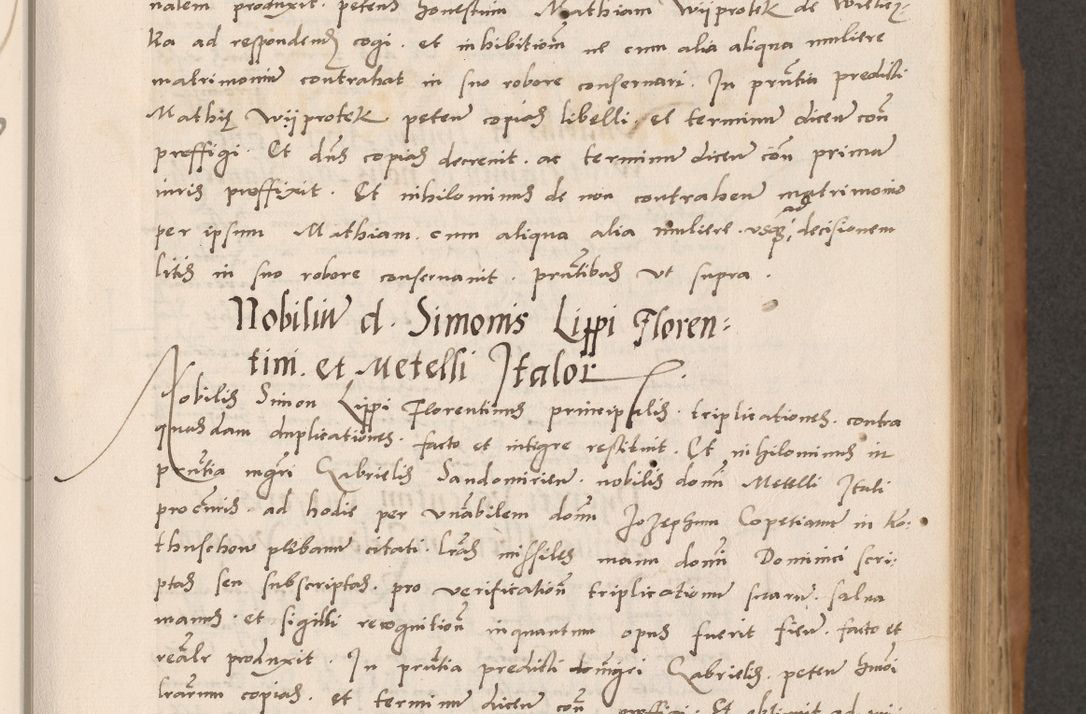 nalem produxit. petens honestum Mathiam Wijprotek de Wieliez-
ka ad respondend cogi. et inhibitiom ne cum alia aliqua muliere
matrimoniu contrahat in suo robore conseruari. In pntia predicti
Mathię Wijprotek peten copias libelli et terminu dicen con
preffigi. Et dns copias decreuit. ac terminu dicen con primu
iuris preffixit. Et nihilominus de non contrahen matrimonio
per ipsum Mathiam. cum aliqua alia muliere. vsq ad decisionem
litis in suo robore conseruauit. pntibus vt supra.
Nobiliu d. Simonis Lippi Floren=
tini. et Metelli Italor.
Nobilis Simon Lippi Florentinus principalis. triplicationes. contra
quasdam duplicationes. facto et integre restituit. Et nihilominus in
pntia mgri Gabrielis Sandomirien. nobilis domi Metelli Itali
procuris. ad hodie per vnabilem domi Jozephum Copetianu in Ko:
thuschow plebanu citati. lras missiles manu domi Dominici scri:
ptas seu subscriptas. pro verification triplicationu suaru. salua
manus. et sigilli recognition inquantum opus fuerit fien. facto et
realr produxit. In pntia predicti domini Gabrielis. peten hmoi
lrarum copias. et terminu dicen con preffigi. Et